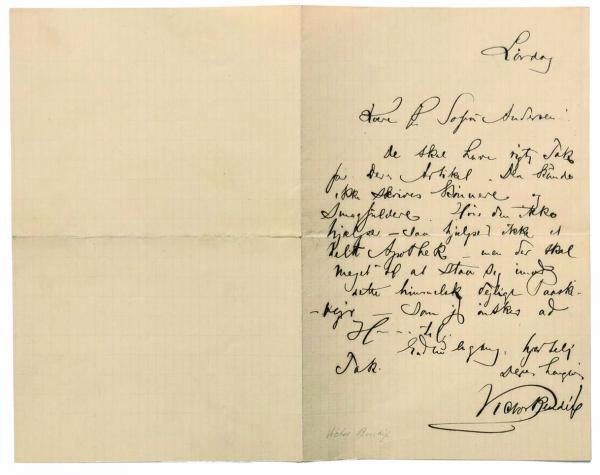 Lørdag
Kære Sofus Andersen!
De skal have rigtig Tak
for Deres Artikel. Den kunde
ikke skrives kønnere og
Smagfuldere. Hvis den ikke
hjælper – saa hjælper ikke et
helt Apothek – men der skal
meget til at staa sig imod
dette himmelsk dejlige
– som jeg ønskes ad
H
Endnu engang, hjertelig
Tak. Deres hengivne
Victor Bendix
Victor Bendix